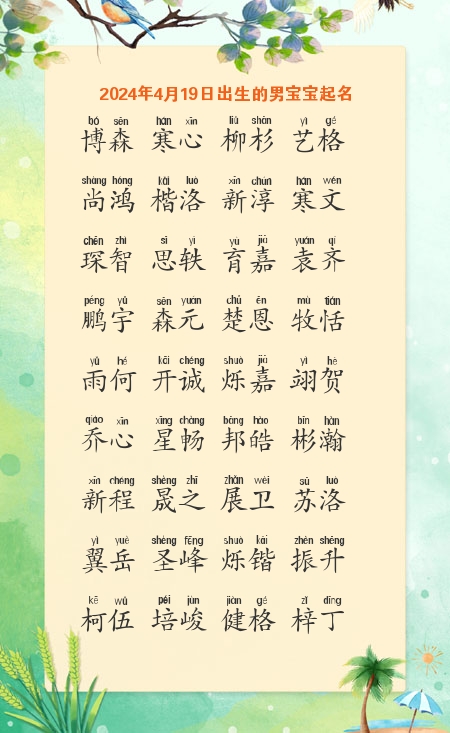 2024年4月19日出生的男宝宝起名
bó sēn hán xīn liǔ shān yì gé
博森 寒心 柳杉 艺格
shàng hóng kǎi luò xīn chún hán wén
尚鸿 楷洛 新淳 寒文
chēn zhì sī yì yù jiā yuán qí
琛智 思轶 育嘉 袁齐
péng yǔ sēn yuán chǔ ēn mù tián
鹏宇 森元 楚恩 牧恬
yǔ hé kāi chéng shuò jiā yì hè
雨何 开诚 烁嘉 翊贺
qiáo xīn xīng chàng bāng hào bīn hàn
乔心 星畅 邦皓 彬瀚
xīn chéng shèng zhī zhǎn wèi sū luò
新程 晟之 展卫 苏洛
yì yuè shèng fēng shuò kǎi zhèn shēng
翼岳 圣峰 烁锴 振升
kē wǔ péi jùn jiàn gé zǐ dīng
柯伍 培峻 健格 梓丁